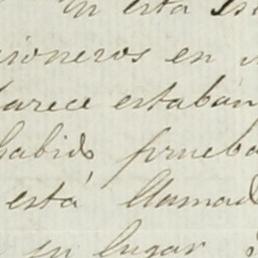 en esta
sioneros en
parece estaban
habido prueba
está llamad
su lugar